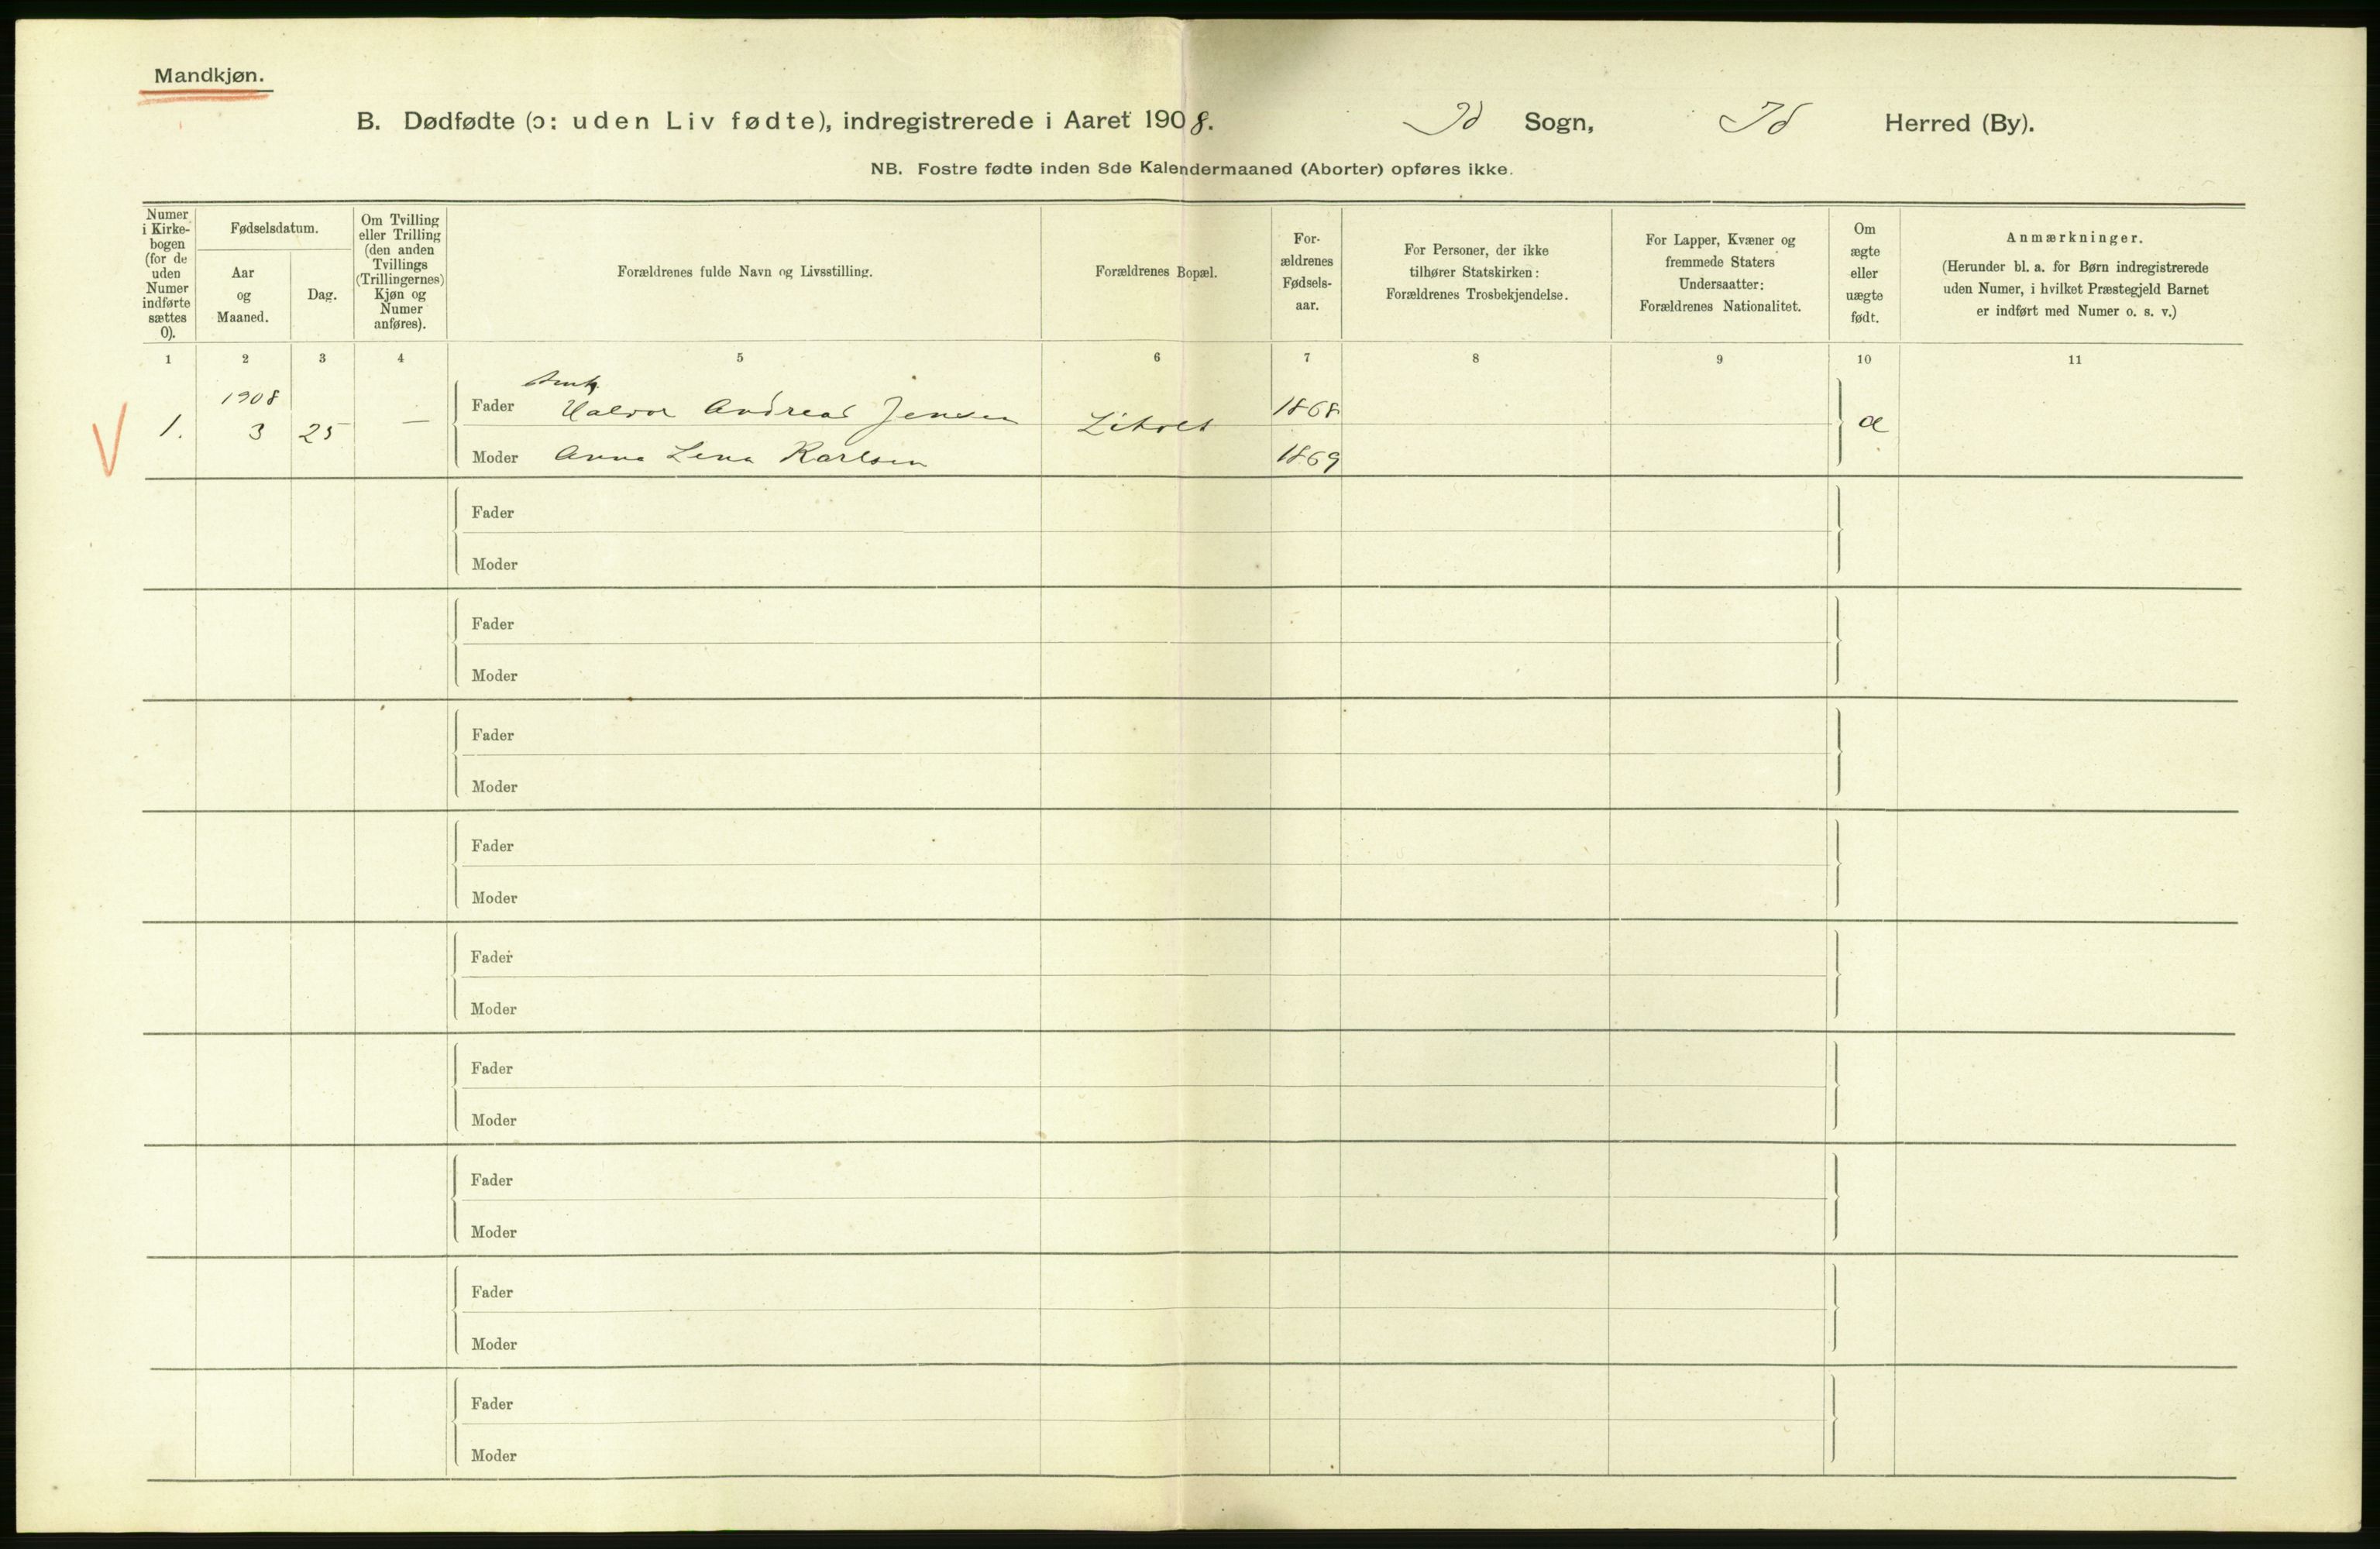 Mandkjøn.
B. Dødfødte (ɔ: uden Liv fødte), indregistrerede i Aaret 1908. Id Sogn, Id Herred (By).
NB. Fostre fødte inden 8de Kalendermaaned (Aborter) opføres ikke.
Numer i Kirke- bogen (for de uden Numer indførte sættes 0).
Fødselsdatum.
Aar og Maaned.
Dag.
Om Tvilling eller Trilling (den anden Tvillings (Trillingernes) Kjøn og Numer anføres).
Forældrenes fulde Navn og Livsstilling.
Forældrenes Bopæl.
For- ældrenes Fødsels- aar.
For Personer, der ikke tilhører Statskirken: Forældrenes Trosbekjendelse.
For Lapper, Kvæner og fremmede Staters Undersaatter: Forældrenes Nationalitet.
Om ægte eller uægte født.
Anmærkninger.
(Herunder bl. a. for Børn indregistrerede uden Numer, i hvilket Præstegjeld Barnet er indført med Numer o. s. v.)
1 2 3 4 5 6 7 8 9 10 11
1908
V 1. 3 25 — Fader Halvor Andreas Jensen 1868 æ
Moder Anna Lena Karlsen 1869
Fader
Moder
Fader
Moder
Fader
Moder
Fader
Moder
Fader
Moder
Fader
Moder
Fader
Moder
Fader
Moder
Fader
Moder